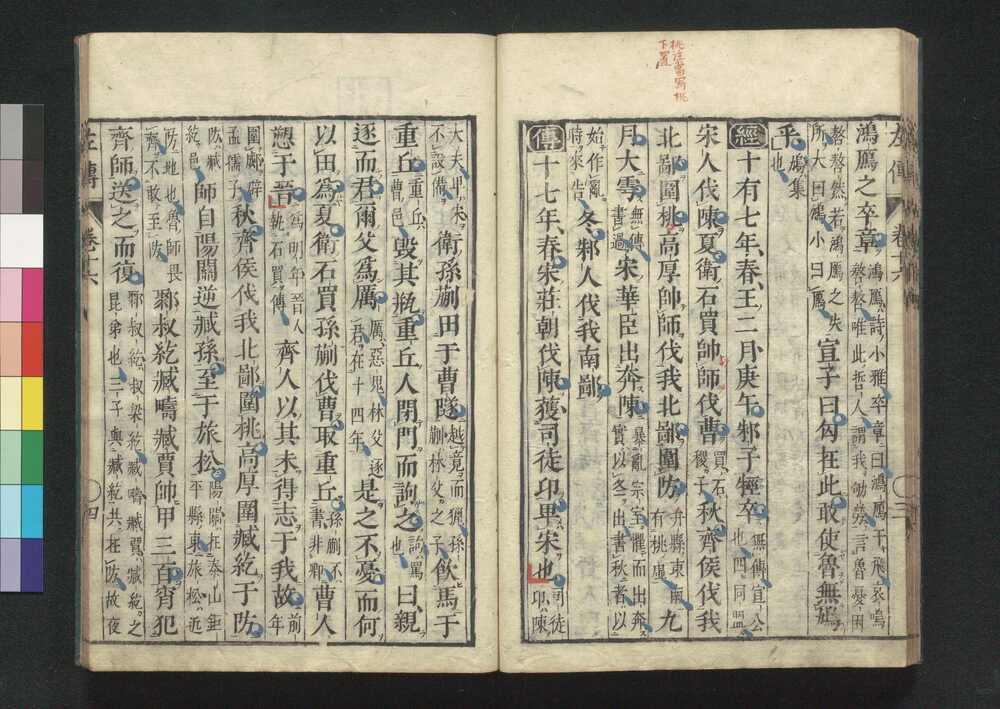 桃注當寫桃
下置
左傳 卷十六 三
鴻鴈之卒章鴻鴈詩小雅卒章曰鴻鴈于飛哀鳴嗸嗸唯此哲人謂我劬勞言魯憂困
嗸嗸然若鴻鴈之失所大曰鴻小曰鴈宣子曰匄在此敢使魯無鳩
乎鳩集也
經十有七年春王二月庚午邾子牼卒無傳宣公也四同盟
宋人伐陳夏衛石買帥師伐曹買石稷子秋齊侯伐我
北鄙圍桃高厚帥師伐我北鄙圍防弁縣東南有桃虛九
月大雩無傳書過宋華臣出奔陳暴亂宗室懼而出奔實以冬出書秋者以
始作亂時來告冬邾人伐我南鄙
傳十七年春宋莊朝伐陳獲司徒卬卑宋也司徒卬陳
大夫卑宋不設備衛孫蒯田于曹隧越竟而獵孫蒯林父之子飲馬于
重丘重丘曹邑毀其瓶重丘人閉門而訽之訽罵也曰親
逐而君爾父爲厲厲惡鬼林父逐君在十四年是之不憂而何
以田爲夏衛石買孫蒯伐曹取重丘孫蒯不書非卿曹人
愬于晉爲明年晉人執石買傳齊人以其未得志于我故前年
圍郕辟孟孺子秋齊侯伐我北鄙圍桃高厚圍臧紇于防
防臧紇邑師自陽關逆臧孫至于旅松陽關在泰山鉅平縣東旅松近
防地也魯師畏齊不敢至防郰叔紇臧疇臧賈帥甲三百宵犯
齊師送之而復郰叔紇叔梁紇臧疇臧賈臧紇之昆弟也三子與臧紇共在防故夜
左傳 卷十六 四